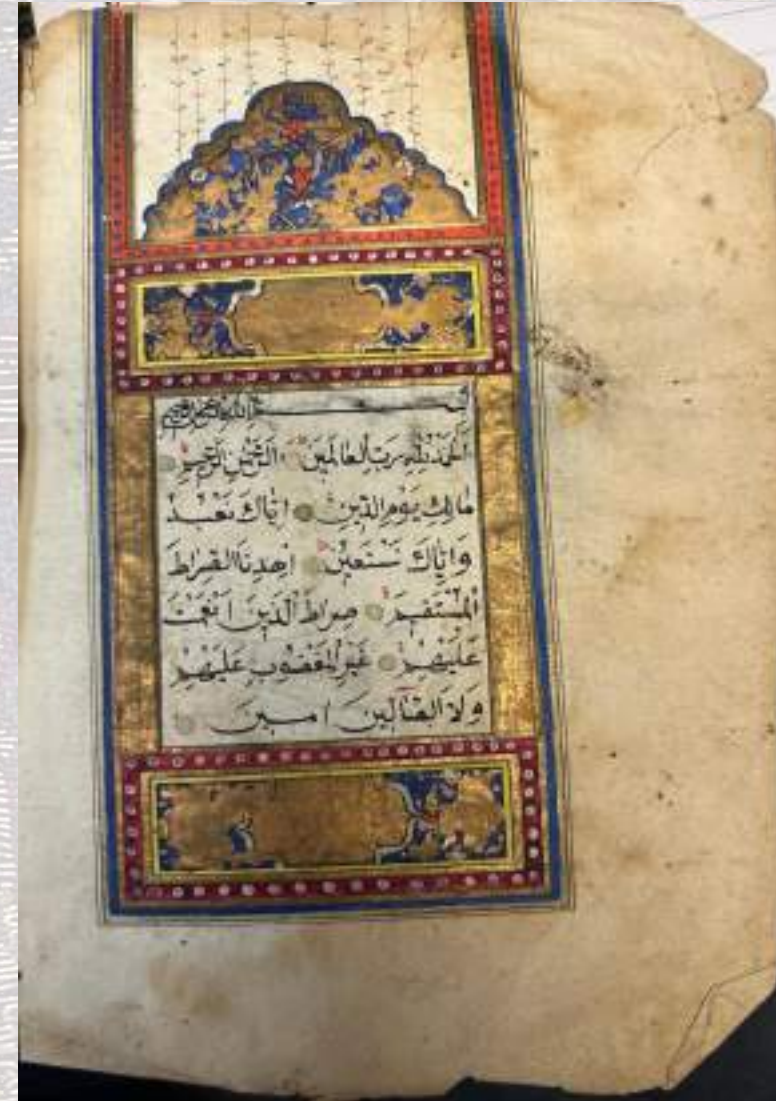 بسم الله الرحمن الرحيم
اَلْحَمْدُ لِلّٰهِ رَبِّ الْعَالَمِينَ الرَّحْمٰنِ الرَّحِيمِ
مَالِكِ يَوْمِ الدِّينِ اِيَّاكَ نَعْبُدُ
وَاِيَّاكَ نَسْتَعِينُ اِهْدِنَا الصِّرَاطَ
الْمُسْتَقِيمَ صِرَاطَ الَّذِينَ اَنْعَمْتَ
عَلَيْهِمْ غَيْرِ الْمَغْضُوبِ عَلَيْهِمْ
وَلَا الضَّالِّينَ امين